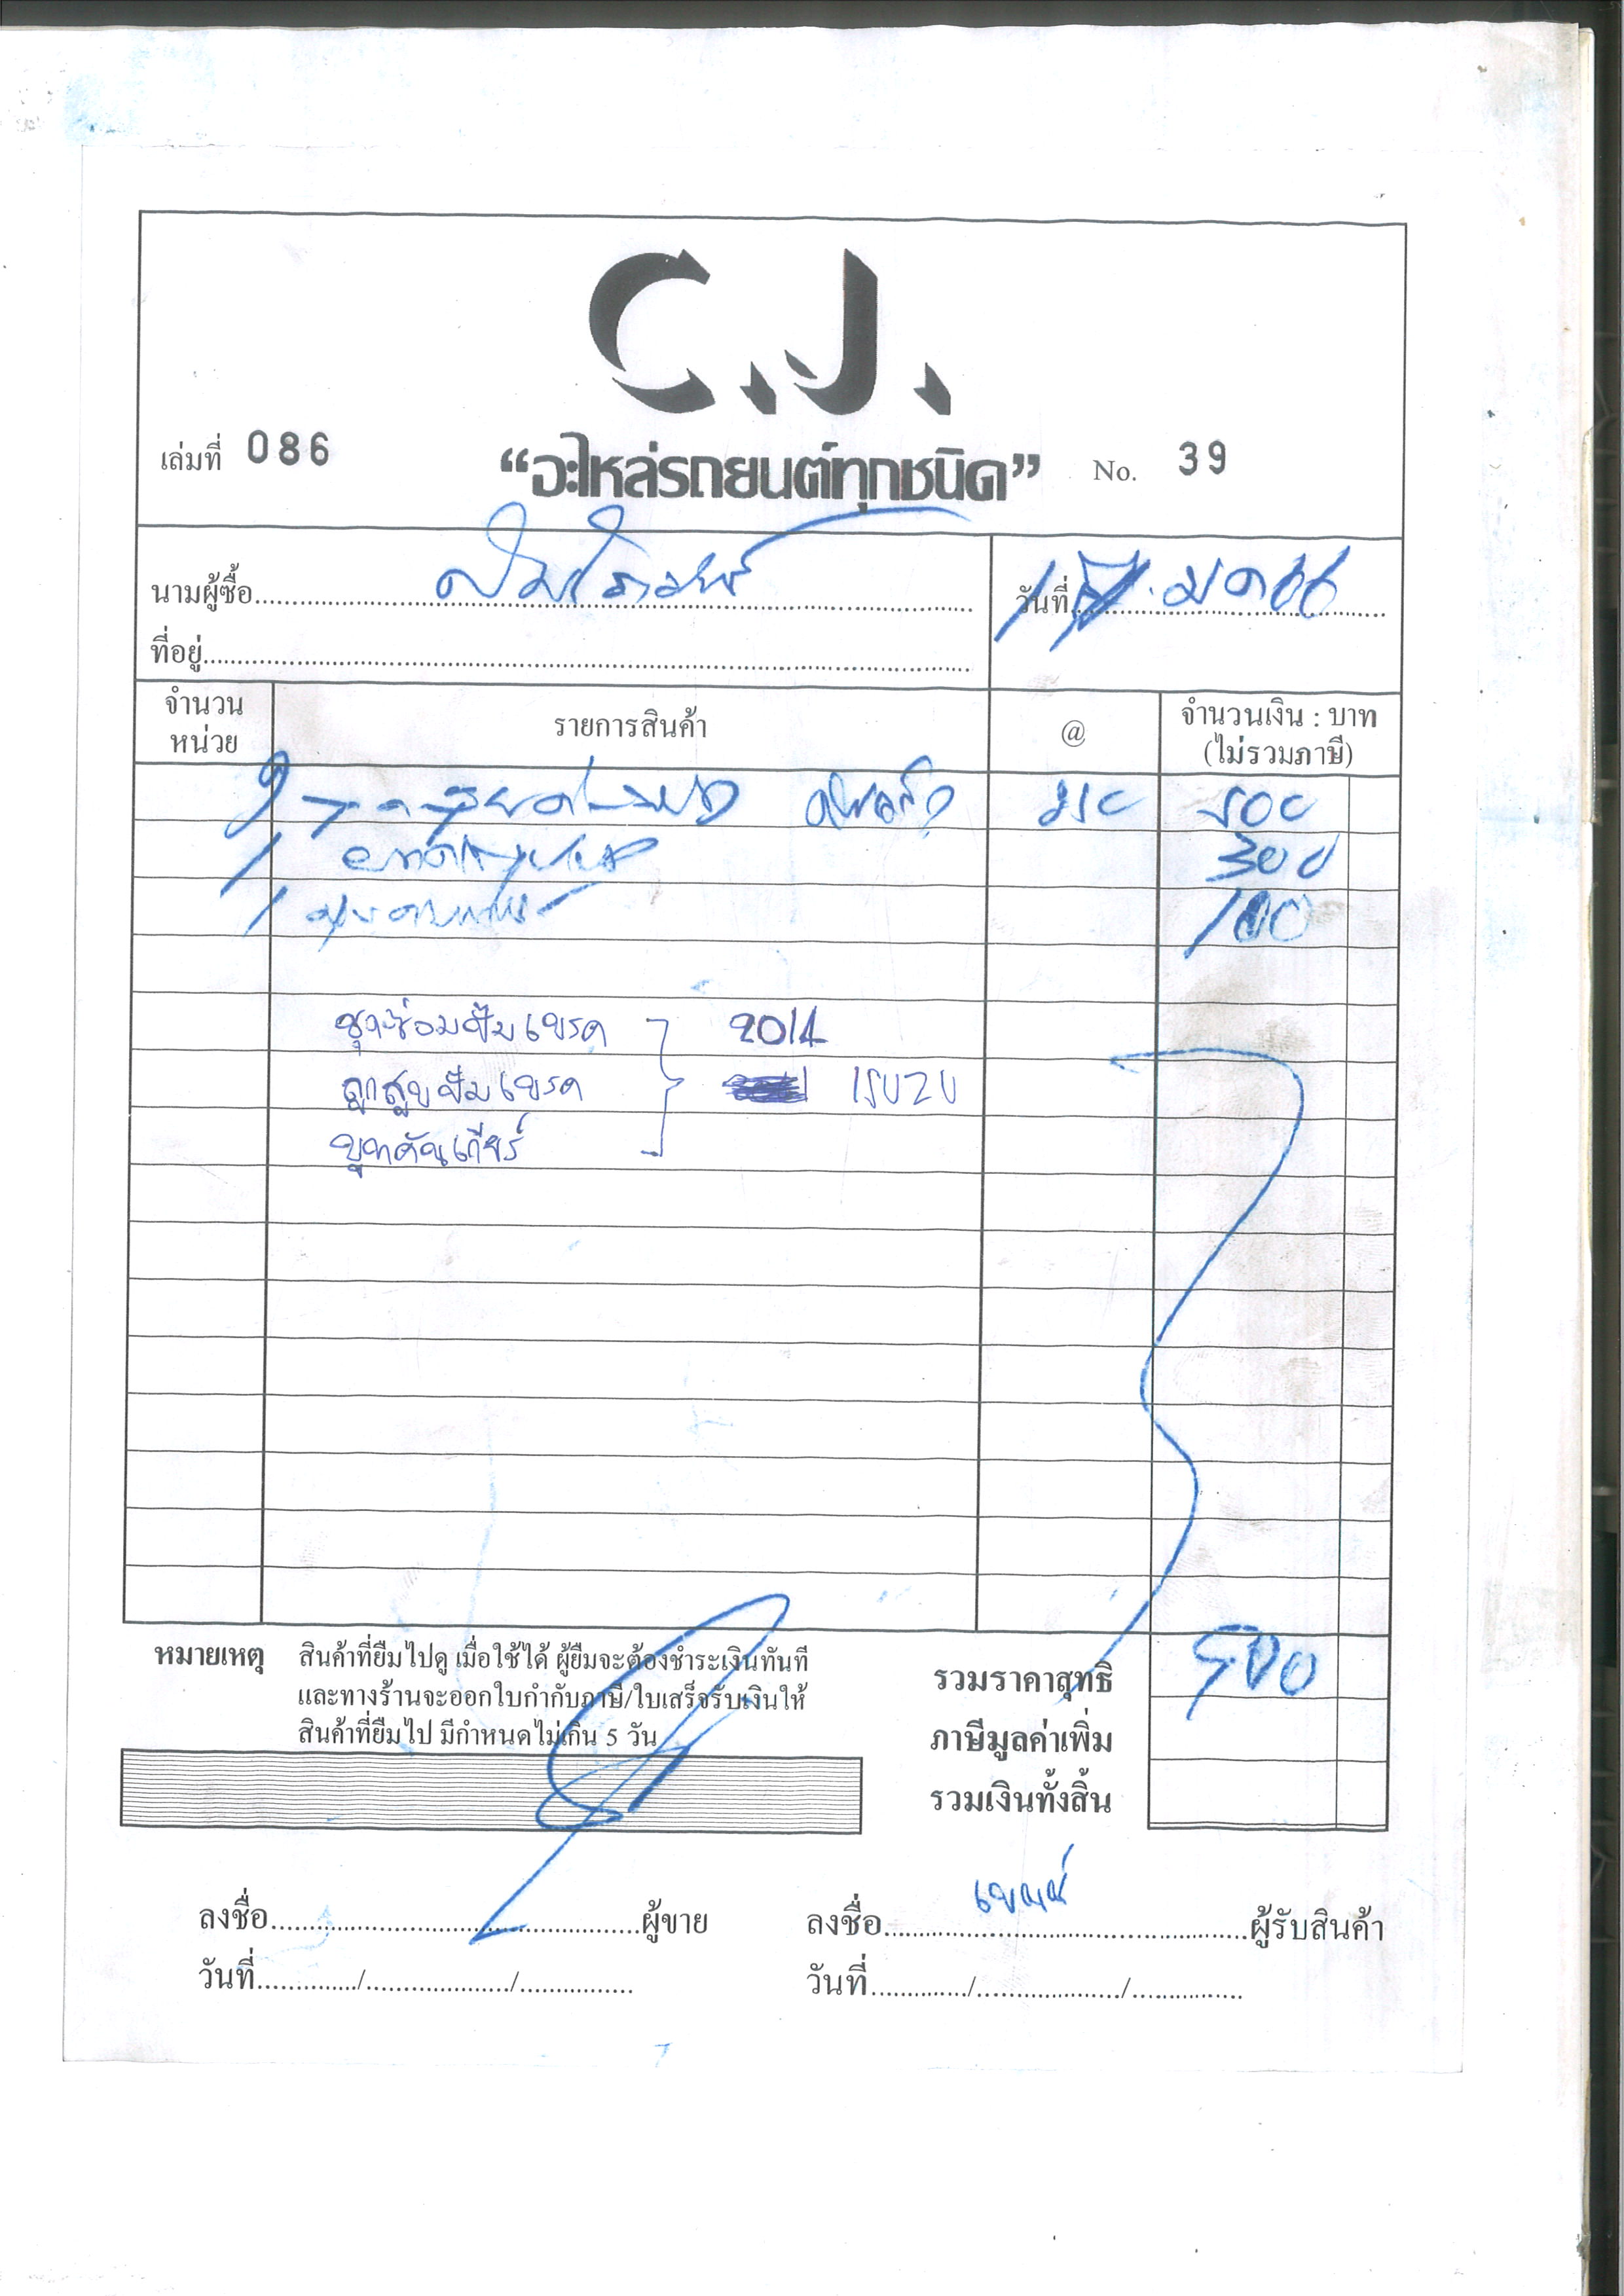 C.J.
เล่มที่ 086 “อะไหล่รถยนต์ทุกชนิด” No. 39
นามผู้ซื้อ
วันที่ มค 66
ที่อยู่
จำนวน หน่วย รายการสินค้า @ จำนวนเงิน : บาท (ไม่รวมภาษี)
2 250 500
1 300
1 100
ชุดซ่อมปั๊มเบรค 2014
ลูกสูบปั๊มเบรค ISUZU
บูทคันเกียร์
หมายเหตุ สินค้าที่ยืมไปดู เมื่อใช้ได้ ผู้ยืมจะต้องชำระเงินทันที
และทางร้านจะออกใบกำกับภาษี/ใบเสร็จรับเงินให้
สินค้าที่ยืมไป มีกำหนดไม่เกิน 5 วัน
รวมราคาสุทธิ 900
ภาษีมูลค่าเพิ่ม
รวมเงินทั้งสิ้น
ลงชื่อ ผู้ขาย ลงชื่อ ผู้รับสินค้า
วันที่ / / วันที่ / /